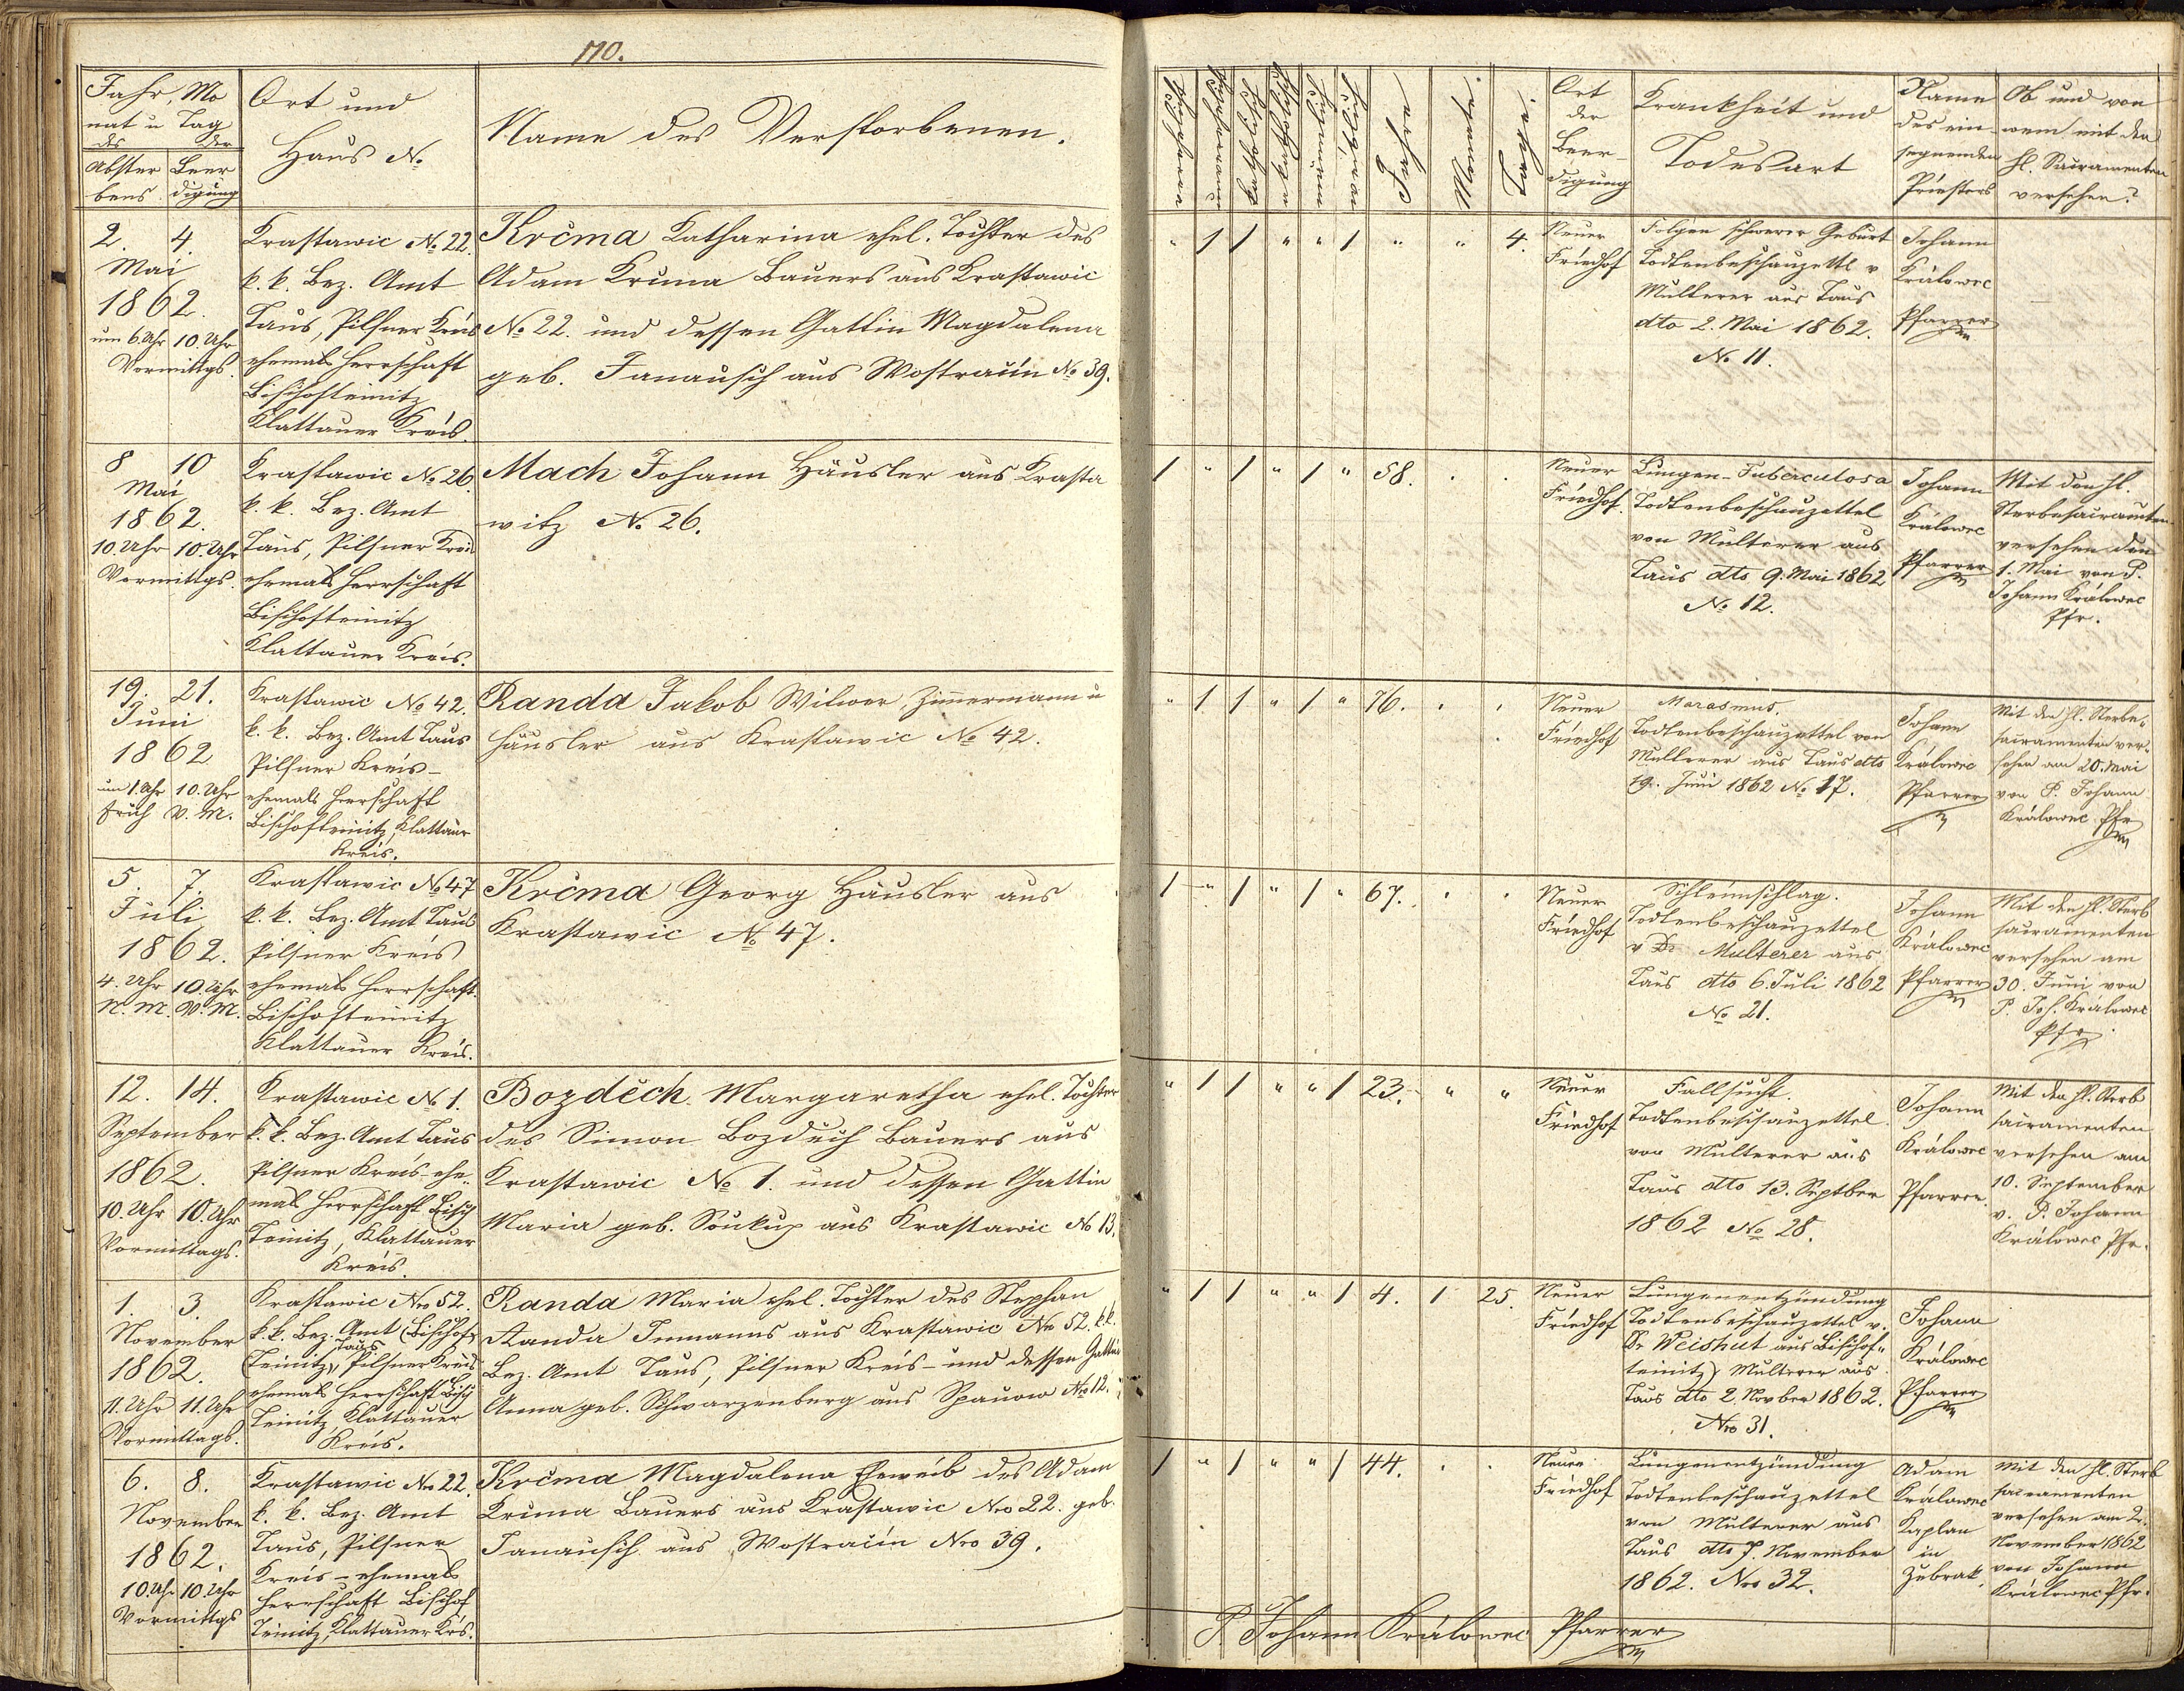 170.
Jahr, Mo
nat u Tag
des der
Abster Beer
bens digung
Ort und
Haus No
Name des Verstorbenen.
Jahre
Monate
Tage
Ort
der
Beer-
digung
Krankheit und
Todesart
Name
des ein-
segnenden
Priesters
Ob und von
wem mit den
hl. Sacramenten
versehen?
2. 4.
Mai
1862.
um 6. Uhr 10. Uhr
Vormittgs.
Krastawic No 22.
k. k. Bez. Amt
Taus, Pilsner Kreis
ehemals Herrschaft
Bischofteinitz
Klattauer Kreis.
Krčma Katharina ehel. Tochter des
Adam Krčma Bauers aus Krastawic
No 22. und dessen Gattin Magdalena
geb. Janausch aus Wostračin No 39.
" 1 1 " " 1 " " 4.
Neuer
Friedhof
Folgen schwerer Geburt
Todtenbeschauzettl v
Multerer aus Taus
dto 2. Mai 1862.
No 11.
Johann
Králowec
Pfarrer
8 10
Mai
1862.
10. Uhr 10. Uhr
Vormittgs.
Krastawic No 26.
k. k. Bez. Amt
Taus, Pilsner Kreis
ehemals Herrschaft
Bischofteinitz
Klattauer Kreis.
Mach Johann Häusler aus Krasta
witz No 26.
1 " 1 " 1 " 58. . .
Neuer
Friedhof.
Lungen-Tuberculosa
Todtenbeschauzettel
von Multerer aus
Taus dto 9. Mai 1862
No 12.
Johann
Králowec
Pfarrer
Mit den hl.
Sterbesacramenten
versehen den
1. Mai von P.
Johann Králowec
Pfr.
19. 21.
Juni
1862
um 1. Uhr 10. Uhr
früh V. M.
Krastawic No 42.
k. k. Bez. Amt Taus
Pilsner Kreis-
ehemals Herrschaft
Bischofteinitz, Klattauer
Kreis.
Randa Jakob Witwer, Zimmermann u
Häusler aus Krastawic No 42.
" 1 1 " 1 " 76. . .
Neuer
Friedhof
Marasmus.
Todtenbeschauzettel von
Multerer aus Taus dto
19. Juni 1862 No 17.
Johann
Králowec
Pfarrer
Mit den hl. Sterbe-
sacramenten ver-
sehen am 20. Mai
von P. Johann
Králowec Pfr
5. 7.
Juli
1862.
4. Uhr 10 Uhr
N. M. V. M.
Krastawic No 47
k. k. Bez. Amt Taus
Pilsner Kreis
ehemals Herrschaft
Bischofteinitz
Klattauer Kreis.
Krčma Georg Häusler aus
Krastawic No 47.
1 " 1 " 1 " 67. . .
Neuer
Friedhof
Schleimschlag.
Todtenbeschauzettel
v Dr Multerer aus
Taus dto 6. Juli 1862
No 21.
Johann
Králowec
Pfarrer
Mit den hl. Sterb
sacramenten
versehen am
30. Juni von
P. Joh. Králowec
Pfr
12. 14.
September
1862.
10. Uhr 10. Uhr
Vormittags.
Krastawic No 1.
k. k. Bez. Amt Taus
Pilsner Kreis ehe-
mals Herrschaft Bisch
Teinitz, Klattauer
Kreis.
Bozděch Margaretha ehel. Tochter
des Simon Bozděch Bauers aus
Krastawic No 1. und dessen Gattin
Maria geb. Soukup aus Krastawic No 13.
" 1 1 " " 1 23. " "
Neuer
Friedhof
Fallsucht.
Todtenbeschauzettel
von Multerer aus
Taus dto 13. Septber
1862 No 28.
Johann
Králowec
Pfarrer
Mit den hl. Sterb
sacramenten
versehen am
10. September
v. P. Johann
Králowec Pfr.
1. 3.
November
1862.
11. Uhr 11. Uhr
Vormittags.
Krastawic Nro 52.
k. k. Bez. Amt (Bischof
Taus
Teinitz), Pilsner Kreis
ehemals Herrschaft Bisch
Teinitz, Klattauer
Kreis.
Randa Maria ehel. Tochter des Stephan
Randa Inmanns aus Krastawic No 52. k.k.
Bez. Amt Taus, Pilsner Kreis- und dessen Gattin
Anna geb. Schwarzenberg aus Spanow Nro 12.
" 1 1 " " 1 4. 1 25.
Neuer
Friedhof
Lungenentzündung
Todtenbeschauzettel v.
Dr Weishut aus Bischof-
teinitz) Multerer aus
Taus dto 2. Novber 1862.
Nro 31.
Johann
Králowec
Pfarrer
6. 8.
November
1862.
10. Uhr 10. Uhr
Vormittgs
Krastawic Nro 22.
k. k. Bez. Amt
Taus, Pilsner
Kreis - ehemals
Herrschaft Bischof
Teinitz, Klattauer Krs.
Krčma Magdalena Eheweib des Adam
Krčma Bauers aus Krastawic Nro 22. geb.
Janausch aus Wostračin Nro 39.
1 " 1 " " 1 44. . .
Neuer
Friedhof
Lungenentzündung
Todtenbeschauzettel
von Multerer aus
Taus dto 7. November
1862. Nro 32.
Adam
Králowec
Kaplan
in
Zebrak.
Mit den hl. Sterb
sacramenten
versehen am 2.
November 1862
von Johann
Králowec Pfr.
P. Johann Králowec Pfarrer